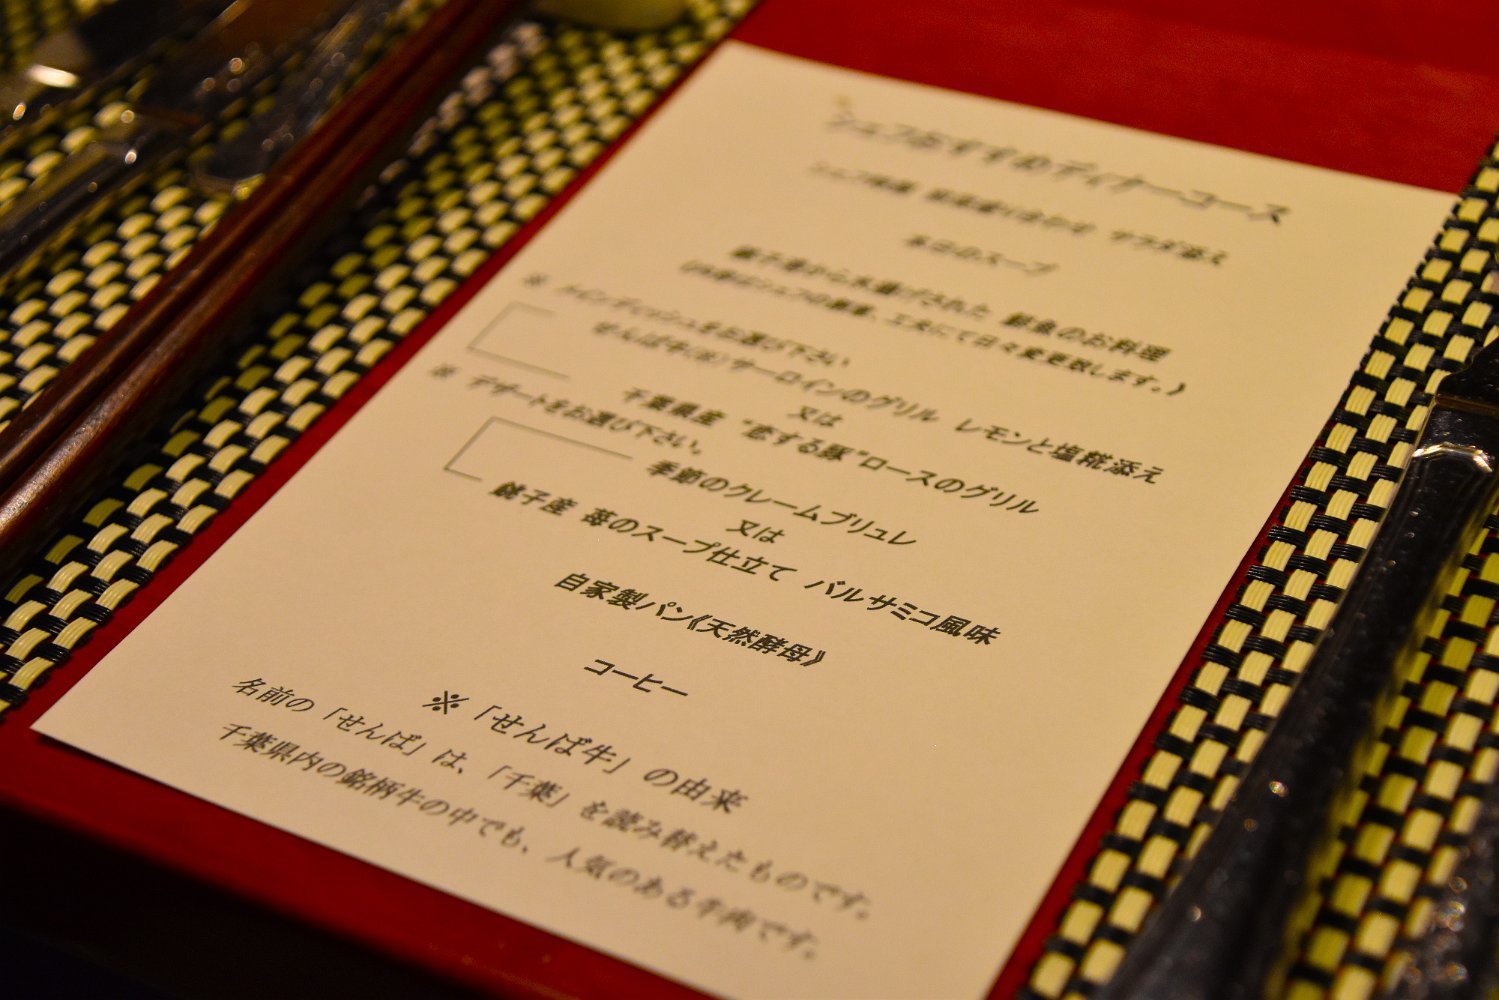 シェフおすすめディナーコース
シェフ特選 前菜盛り合わせ サラダ添え
本日のスープ
銚子港から水揚げされた 鮮魚のお料理
シェフの 工夫にて日々変更致します。》
※ メインディッシュをお選び下さい
せんば牛(※)サーロインのグリル レモンと塩糀添え
又は
千葉県産 “恋する豚”ロースのグリル
※ デザートをお選び下さい。
季節のクレームブリュレ
又は
銚子産 苺のスープ仕立て バルサミコ風味
自家製パン《天然酵母》
コーヒー
※「せんば牛」の由来
名前の「せんば」は、「千葉」を読み替えたものです。
千葉県内の銘柄牛の中でも、人気のある牛肉です。